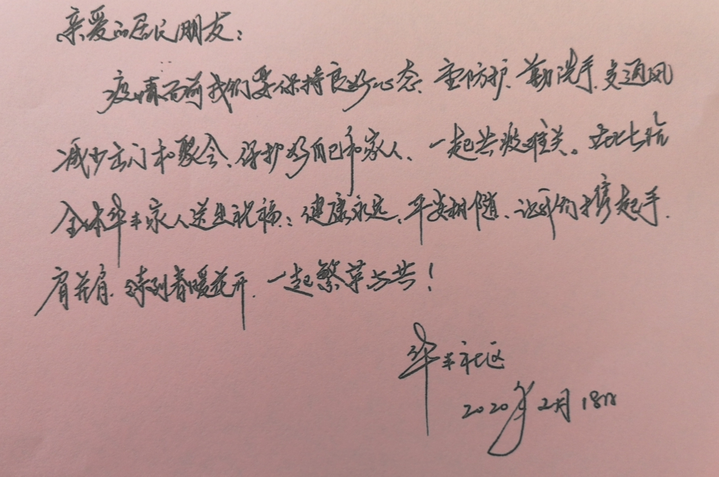 亲爱的居民朋友：
疫情面前我们要保持良好心态、重防护、勤洗手、多通风
减少出门和聚会、保护好自己和家人、一起共渡难关。在此与
全体华丰家人送上祝福：健康永远，平安相随，让我们携起手、
肩并肩、待到春暖花开、一起繁华与共！
华丰社区
2020年2月18日